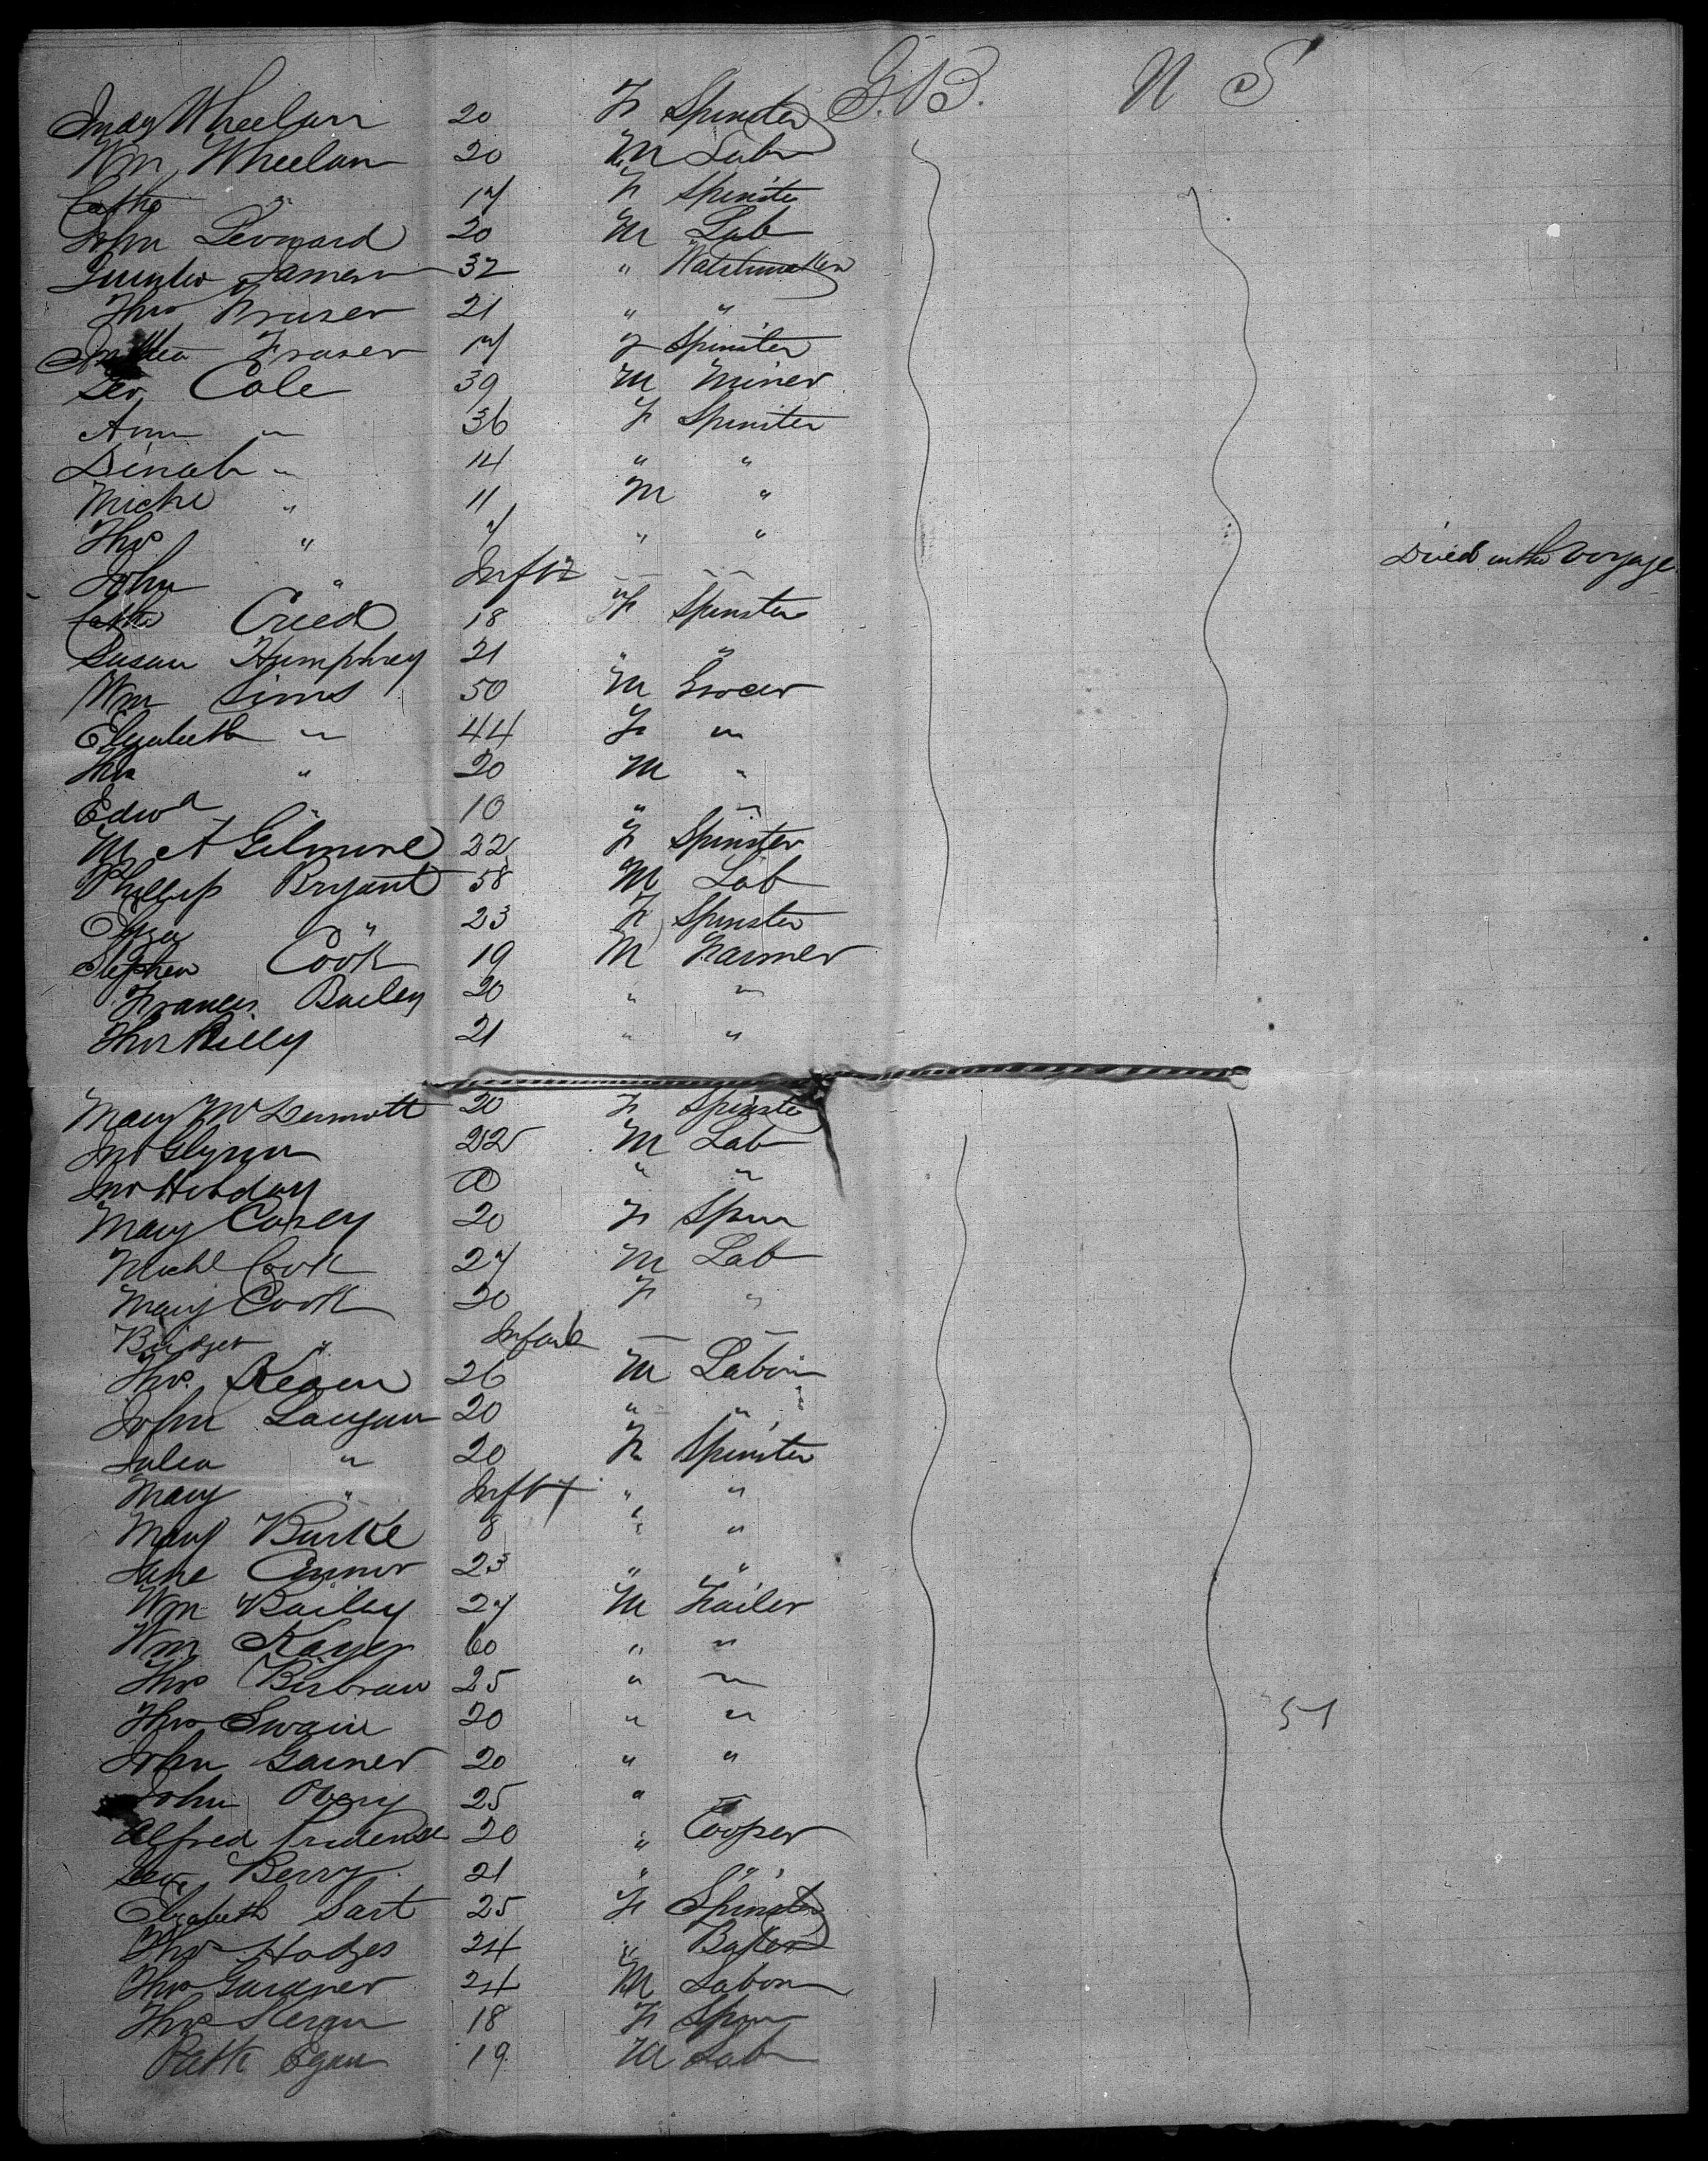 Judy Wheelan 20 F Spinster G.B. U S
Wm Wheelan 20 M Lab
Cathe " 17 F Spinster
John Leonard 20 M Lab
James 32 " Watchmaker
Thos Fraser 21 " "
Fraser 17 F Spinster
Geo. Cole 39 M Miner
Ann " 36 F Spinster
Dinah " 14 " "
Michl " 11 M "
Thos " 7 " " Died on the Voyage
John " Inft
Cathe Creed 18 F Spinster
Susan Humphrey 21 " "
Wm Sims 50 M Grocer
Elizabeth " 44 F "
Thos " 20 M "
Edwd " 10 " "
M A Gilmore 22 F Spinster
Phillip Bryant 58 M Lab
Eliza " 23 F Spinster
Stephen Cook 19 M Farmer
Francis Bailey 20 " "
Thos Reilly 21 " "
Mary McDermott 20 F Spinster
Jno Glynn 22 M Lab
Jno " "
Mary Casey 20 F Spin
Michl Cook 27 M Lab
Mary Cook 20 F "
Bridget " Infant — —
Thos. Regan 26 M Labor
John Langan 20 " "
Julia " 20 F Spinster
Mary " Inft " "
Mary Burke 8 " "
Jane Connor 23 " "
Wm Bailey 27 M Tailer
Wm 60 " "
Thos 25 " "
Thos Swain 20 " " 51
John Garner 20 " "
John 25 " "
Alfred Pridense 20 " Cooper
Geo. Berry 21 " "
Elizabeth Sart 25 F Spinster
Thos Hodges 24 " Baker
Thos Gardner 24 M Labor
Thos 18 F Spin
Patk Egan 19 M Lab